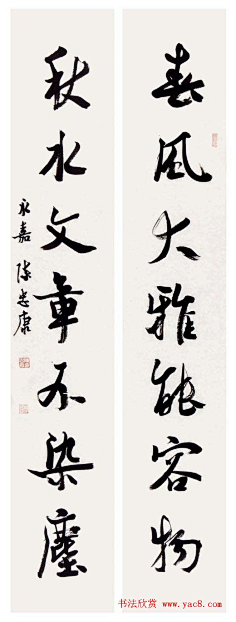 春風大雅能容物
秋水文章不染塵
永嘉 陈忠康
书法欣赏 www.yac8.com